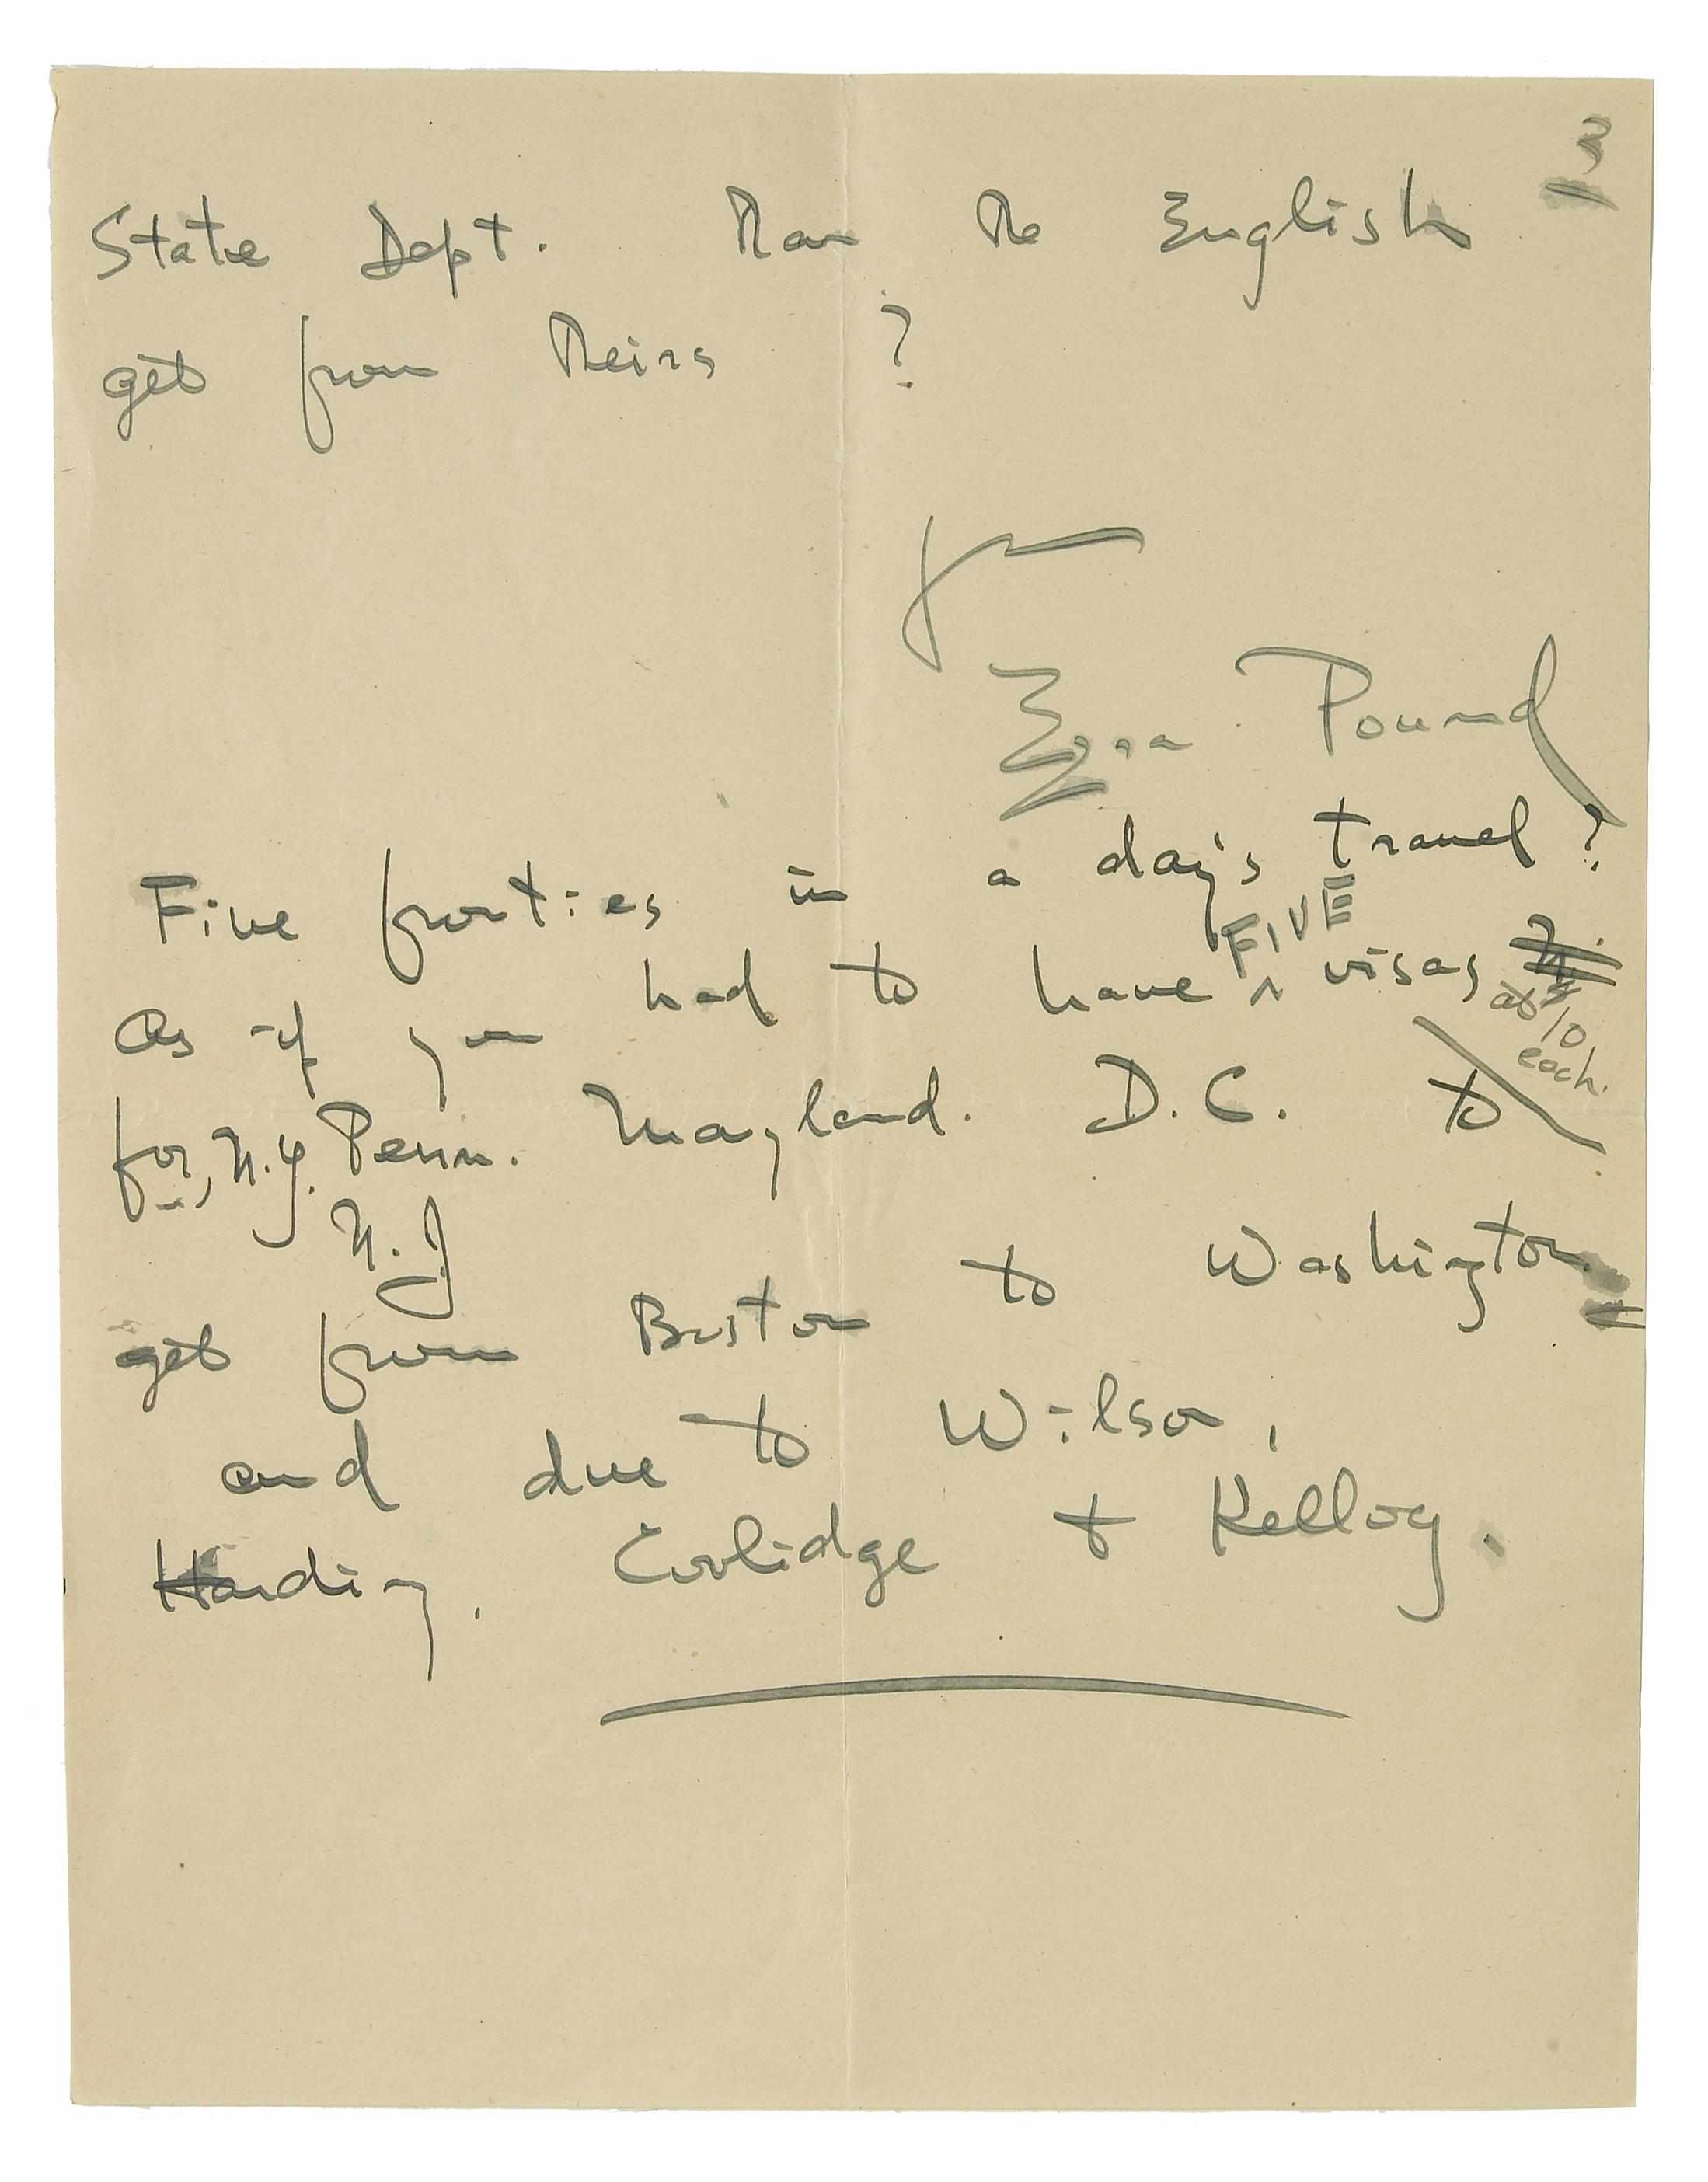 3
State Dept. than the English
get from theirs ?
yrs
Ezra Pound
Five fronties in a day's travel ?
As if you had to have ^ FIVE visas
at 10
each.
for, N.Y. Penn. Mayland. D.C. to
N.J
get from Boston to Washington
and due to Wilson,
Harding, Coolidge & Kellog.